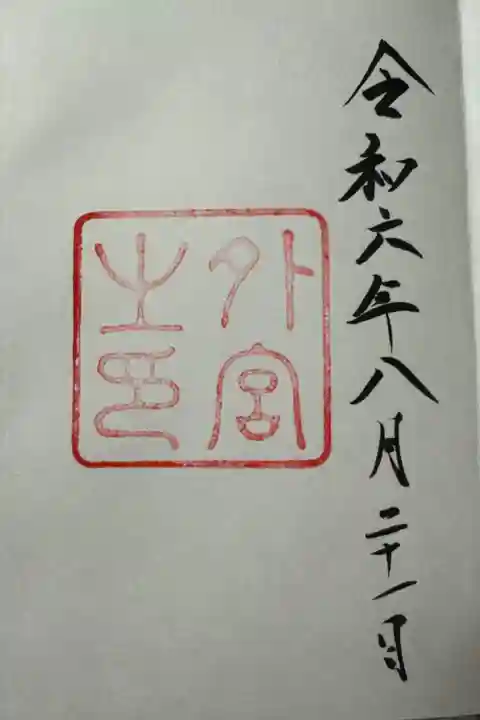 令和六年八月二十一日
外宮
之印